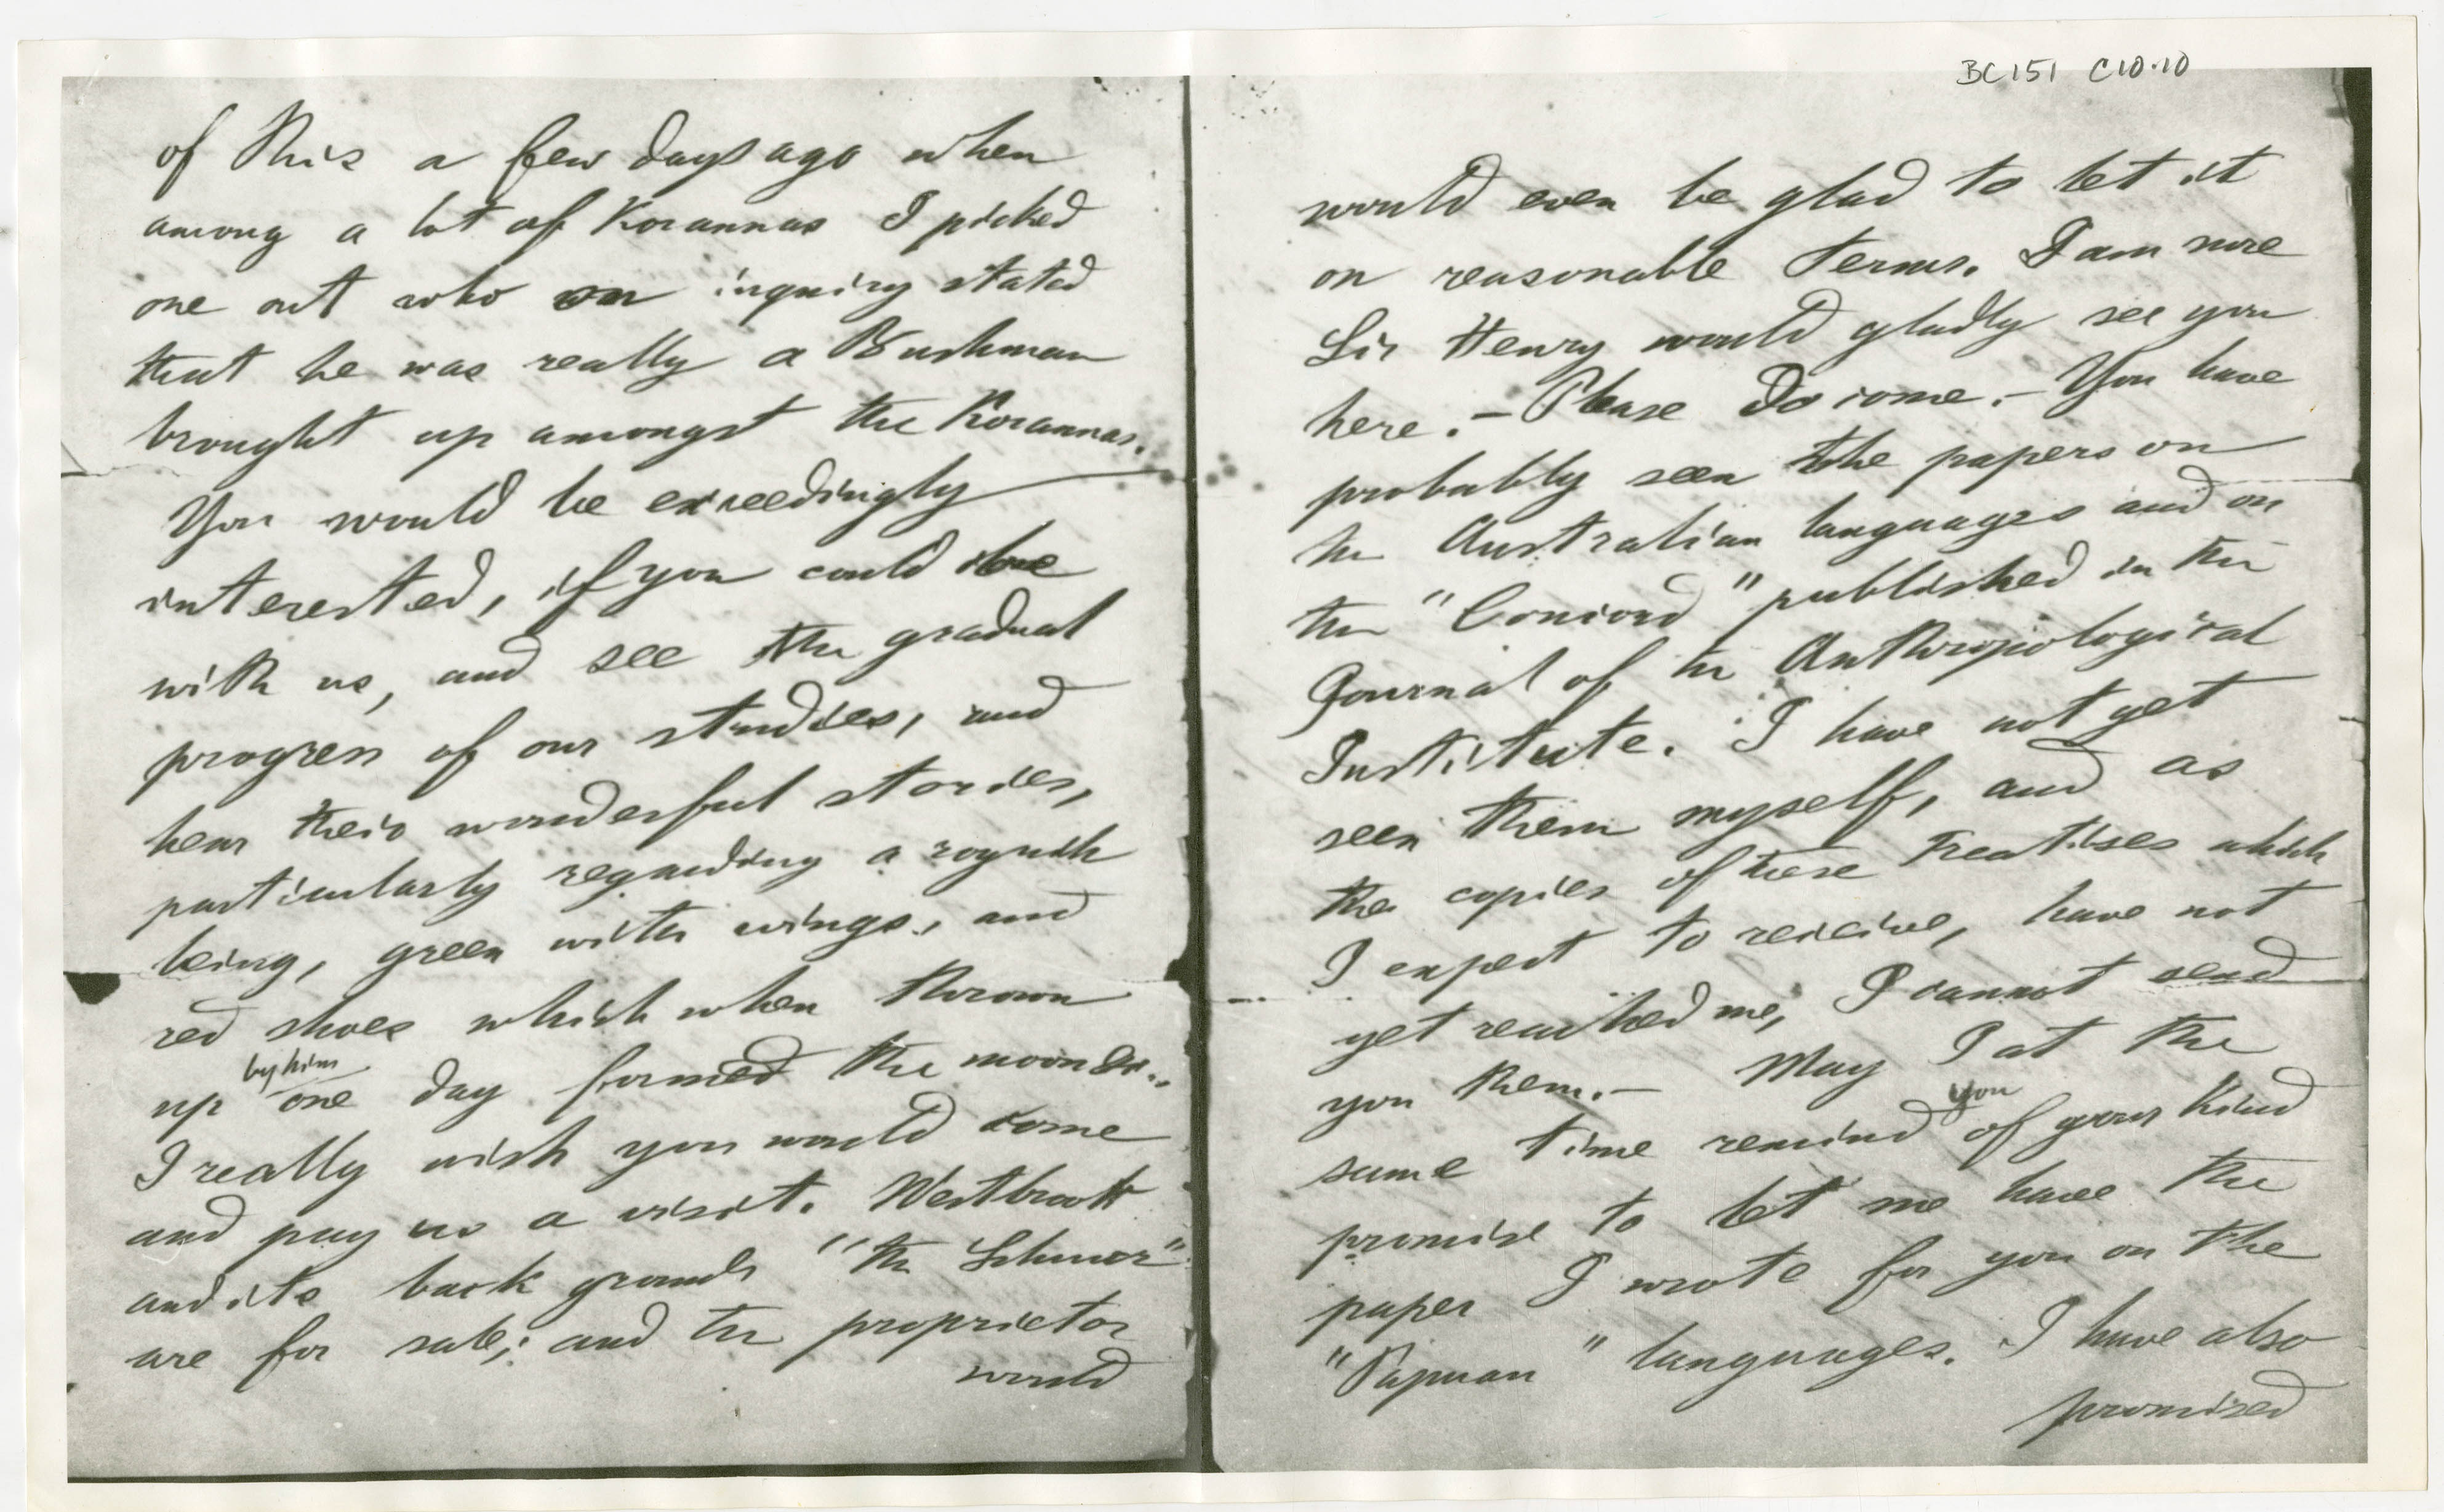 BC 151 C10.10
of this a few days ago when
among a lot of Korannas I picked
one out who on inquiry stated
that he was really a Bushman
brought up amongst the Korannas.
You would be exceedingly
interested, if you could be
with us, and see the gradual
progress of our studies, and
hear their wonderful stories,
particularly regarding a roguish
being, green with wings, and
red shoes which when thrown
up by him one day formed the moon &c..
I really wish you would come
and pay us a visit. Westbrook
and its back grounds "the
are for sale; and the proprietor
would
would even be glad to let it
on reasonable terms. I am sure
Sir Henry would gladly see you
here. – Please Do come. – You have
probably seen the papers on
the Australian languages and on
the "Concord" published in the
Journal of the Anthropological
Institute. I have not yet
seen them myself, and as
the copies of these treatises which
I expect to receive, have not
yet reached me, I cannot send
you them. – May I at the
same time remind you of your kind
promise to let me have the
paper I wrote for you on the
"Papuan" languages. I have also
promised